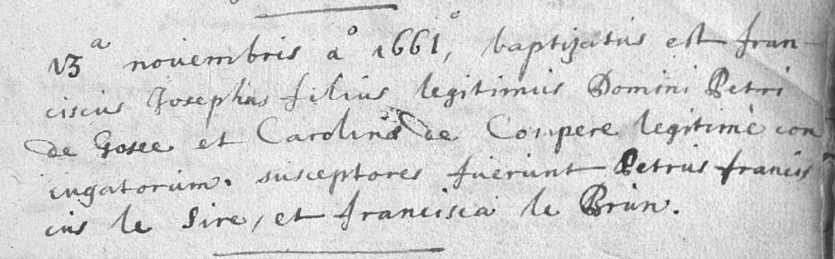 13ª novembris aº 1661º, baptizatus est fran-
ciscus Josephus filius legitimus Domini Petri
de Gosee et Carolina de Coupere legitime con
iugatorum. susceptores fuerunt Petrus francis
cus le Sire, et francisca le Brun.